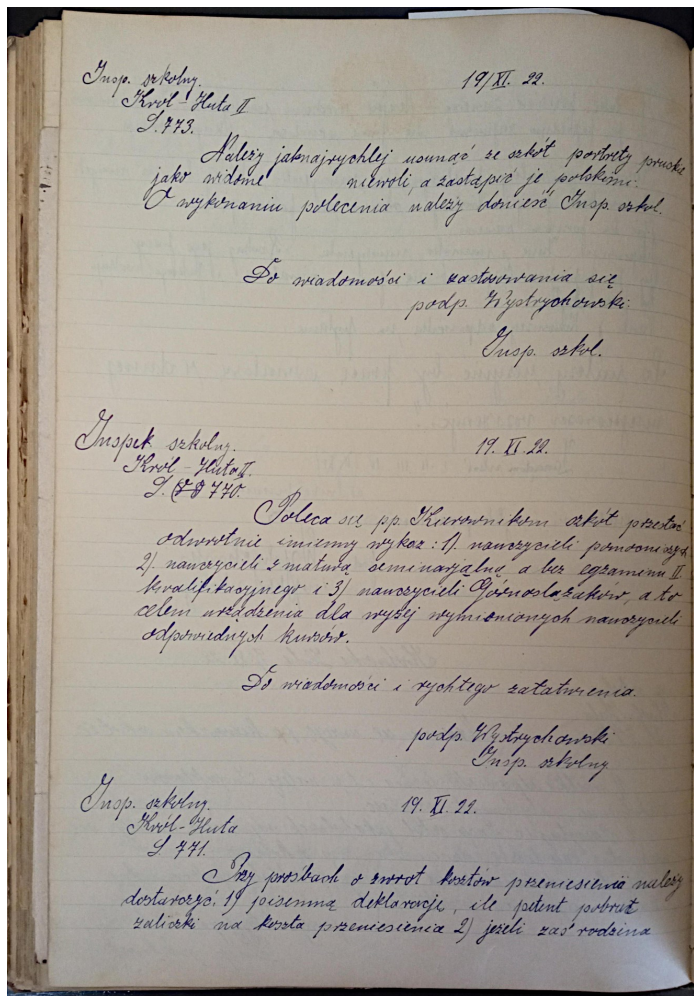 Insp. szkolny. 19/XI. 22.
Król-Huta II
L. 773.
Należy jaknajrychlej usunąć ze szkół portrety pruskie
jako widome niewoli, a zastąpić je polskimi.
O wykonaniu polecenia należy donieść Insp. szkol.
Do wiadomości i zastosowania się
podp. Wystrychowski.
Insp. szkol.
Inspek. szkolny. 19. XI. 22.
Król-Huta II.
L. 770.
Poleca się pp. Kierownikom szkół przesłać
odwrotnie imienny wykaz: 1). nauczycieli pomocniczych
2). nauczycieli z maturą seminarjalną a bez egzaminu II.
kwalifikacyjnego i 3) nauczycieli Górnoslązaków, a to
celem urządzenia dla wyżej wymienionych nauczycieli
odpowiednych kursów.
Do wiadomości i rychłego załatwienia.
podp. Wystrychowski
Insp. szkolny
Insp. szkolny. 19. XI. 22.
Król-Huta
L. 771.
Przy prośbach o zwrot kosztów przeniesienia należy
dostarczyć: 1) pisemną deklarację, ile petent pobrał
zaliczki na koszta przeniesienia 2) jeżeli zaś rodzina